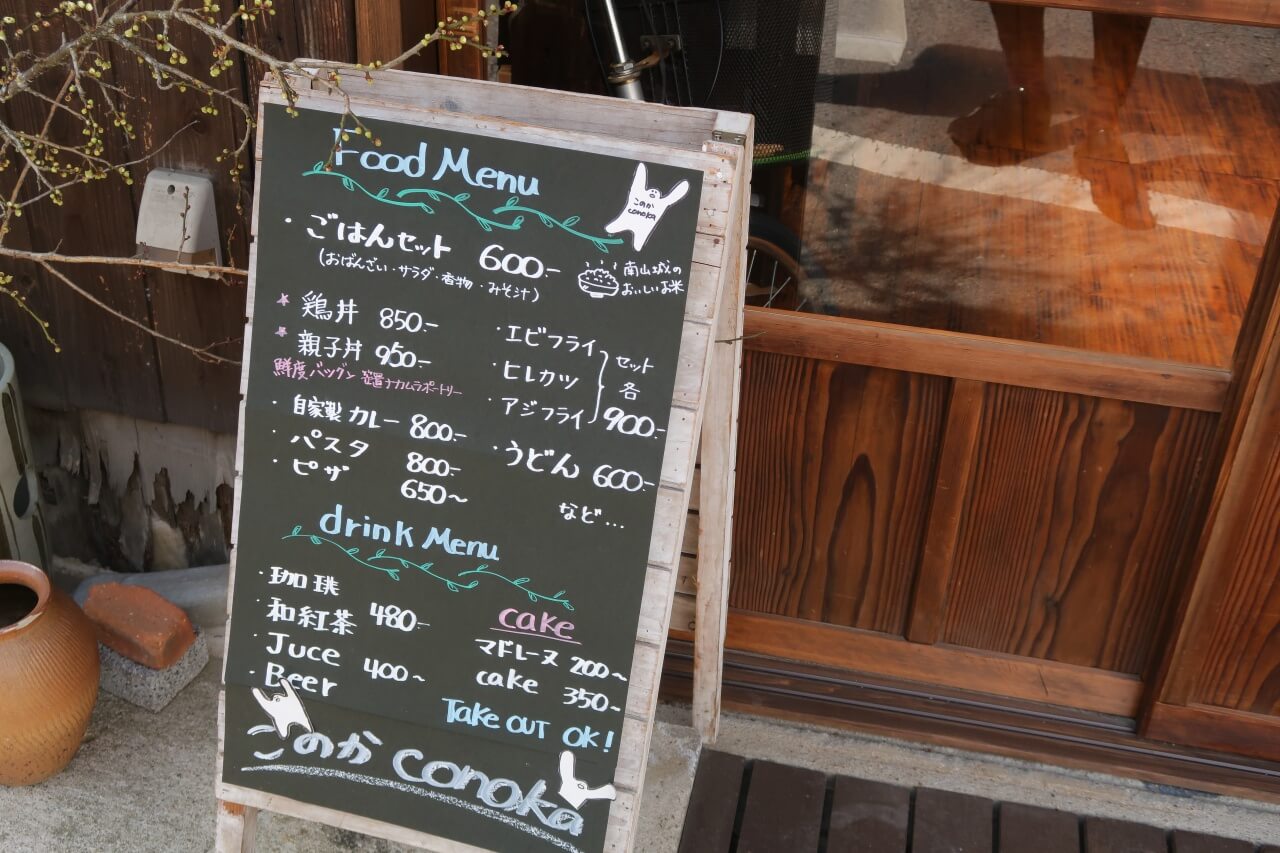 Food Menu
このか
conoka
・ごはんセット 600-
(おばんざい・サラダ・香物・みそ汁)
南山城の
おいしいお米
鶏丼 850-
親子丼 950-
鮮度バツグン
・自家製カレー 800-
・パスタ 800-
・ピザ 650~
・エビフライ
・ヒレカツ
・アジフライ
セット
各
900-
・うどん 600-
など...
drink Menu
・珈琲
・和紅茶 480-
・Juce 400~
・Beer
cake
マドレーヌ 200~
cake 350~
Take OUT OK!
このか conoka